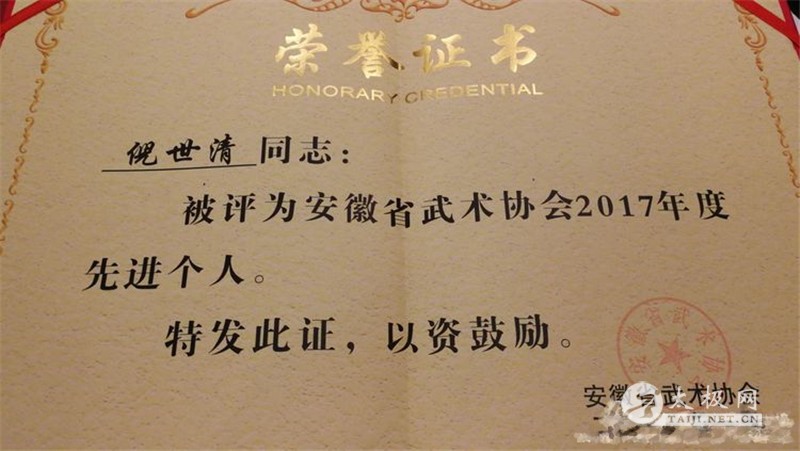 荣誉证书
HONORARY CREDENTIAL
倪世清同志：
被评为安徽省武术协会2017年度
先进个人。
特发此证，以资鼓励。
安徽省武术协
安徽省武术协会
太极网
TAIJI.NET.CN